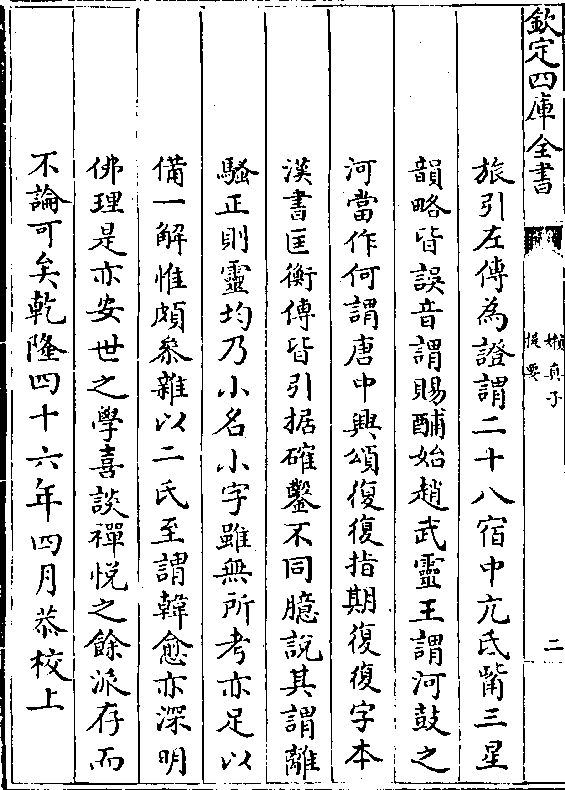 欽定四庫全書
嬾真子
提要
二
旅引左傳為證謂二十八宿中亢氐觜三星
韻略皆誤音謂賜酺始趙武靈王謂河鼓之
河當作何謂唐中興頌復復指期復復字本
漢書匡衡傳皆引据確鑿不同臆說其謂離
騷正則靈均乃小名小字雖無所考亦足以
備一解惟頗叅雜以二氏至謂韓愈亦深明
佛理是亦安世之學喜談禪悅之餘派存而
不論可矣乾隆四十六年四月恭校上